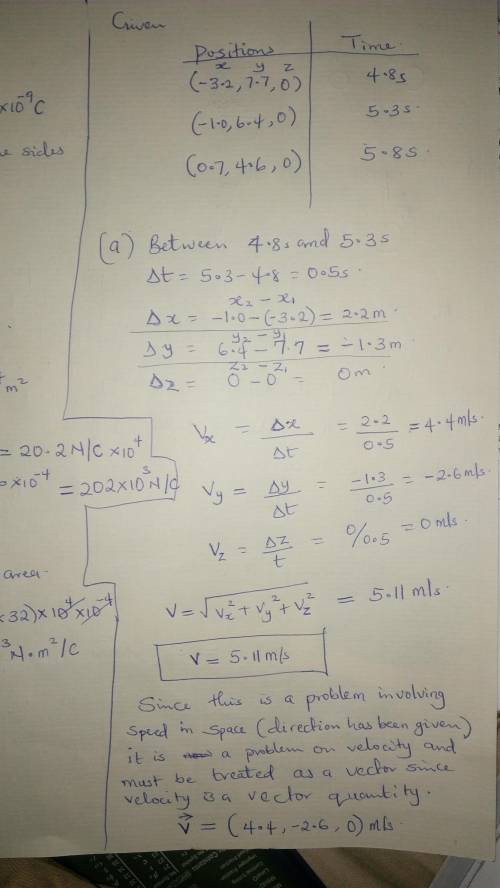 Given
Positions
Time
x y z
(-3.2, 7.7, 0)
4.8s
(-1.0, 6.4, 0)
5.3s.
(0.7, 4.6, 0)
5.8s
×10⁻⁹C
sides
(a) Between 4.8s and 5.3s
Δt = 5.3 - 4.8 = 0.5s.
x₂ - x₁
Δx = -1.0 - (-3.2) = 2.2m.
y₂ - y₁
Δy = 6.4 - 7.7 = -1.3m
z₂ - z₁
Δz = 0 - 0 = 0m.
m²
= 20.2 N/C × 10⁴
×10⁻⁴ = 202×10³N/C
area.
×32)×10⁴×10⁻⁴
³N.m²/C
Vx = Δx/Δt = 2.2/0.5 = 4.4m/s.
Vy = Δy/Δt = -1.3/0.5 = -2.6m/s.
Vz = Δz/t = 0/0.5 = 0m/s.
V = √Vx² + Vy² + Vz² = 5.11m/s.
V = 5.11m/s
Since this is a problem involving
speed in space (direction has been given)
it is a problem on velocity and
must be treated as a vector since
velocity is a vector quantity.
V⃗ = (4.4, -2.6, 0) m/s.